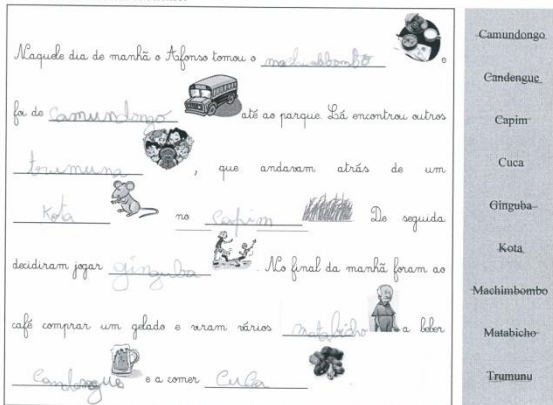 Naquele dia de manhã o Afonso tomou o machimbombo e
foi de camundongo até ao parque. Lá encontrou outros
trumuna, que andavam atrás de um
Kota no capim. De seguida
decidiram jogar ginguba. No final da manhã foram ao
café comprar um gelado e viram vários matabicho a beber
Candengue e a comer Cuca
Camundongo
Candengue
Capim
Cuca
Ginguba
Kota
Machimbombo
Matabicho
Trumunu